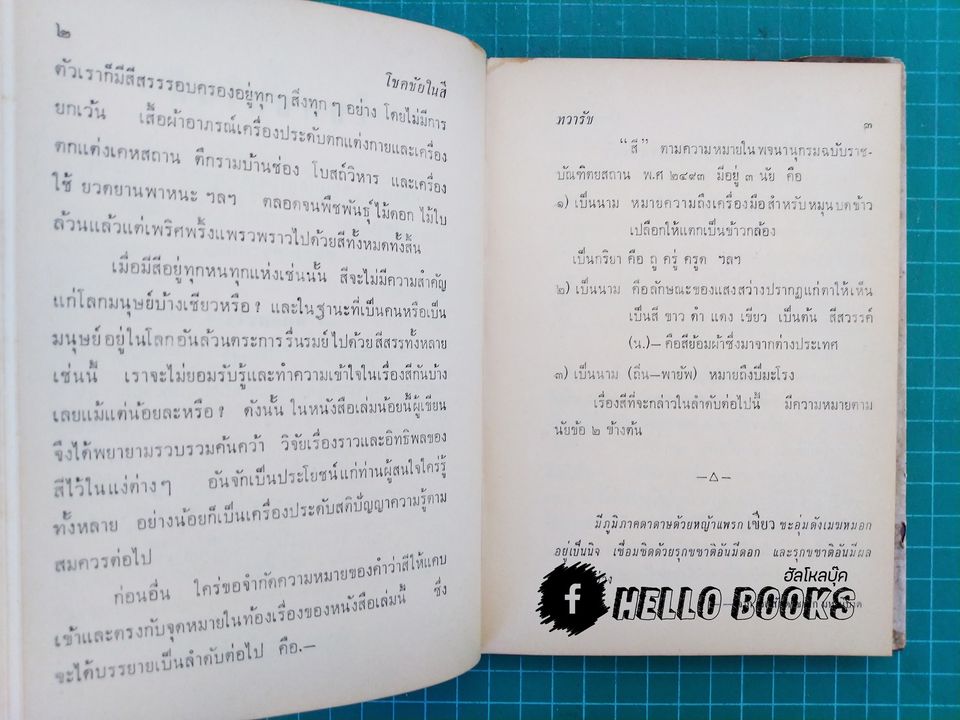 ๒
โชคชัยในสี
ตัวเราก็มีสีสรรรอบครองอยู่ทุก ๆ สิ่งทุก ๆ อย่าง โดยไม่มีการ
ยกเว้น เสื้อผ้าอาภรณ์เครื่องประดับตกแต่งกายและเครื่อง
ตกแต่งเคหสถาน ตึกรามบ้านช่อง โบสถ์วิหาร และเครื่อง
ใช้ ยวดยานพาหนะ ฯลฯ ตลอดจนพืชพันธุ์ไม้ดอก ไม้ใบ
ล้วนแล้วแต่เพริศพริ้งแพรวพราวไปด้วยสีทั้งหมดทั้งสิ้น
เมื่อมีสีอยู่ทุกหนทุกแห่งเช่นนั้น สีจะไม่มีความสำคัญ
แก่โลกมนุษย์บ้างเชียวหรือ ? และในฐานะที่เป็นคนหรือเป็น
มนุษย์อยู่ในโลกอันล้วนตระการรื่นรมย์ไปด้วยสีสรรทั้งหลาย
เช่นนี้ เราจะไม่ยอมรับรู้และทำความเข้าใจในเรื่องสีกันบ้าง
เลยแม้แต่น้อยละหรือ ? ดังนั้น ในหนังสือเล่มน้อยนี้ผู้เขียน
จึงได้พยายามรวบรวมค้นคว้า วิจัยเรื่องราวและอิทธิพลของ
สีไว้ในแง่ต่าง ๆ อันจักเป็นประโยชน์แก่ท่านผู้สนใจใคร่รู้
ทั้งหลาย อย่างน้อยก็เป็นเครื่องประดับสติปัญญาความรู้ตาม
สมควรต่อไป
ก่อนอื่น ใคร่ขอจำกัดความหมายของคำว่าสีให้แคบ
เข้าและตรงกับจุดหมายในท้องเรื่องของหนังสือเล่มนี้ ซึ่ง
จะได้บรรยายเป็นลำดับต่อไป คือ.—
ทวารัช
๓
“สี” ตามความหมายในพจนานุกรมฉบับราช-
บัณฑิตยสถาน พ.ศ ๒๔๙๓ มีอยู่ ๓ นัย คือ
๑) เป็นนาม หมายความถึงเครื่องมือสำหรับหมุนบดข้าว
เปลือกให้แตกเป็นข้าวกล้อง
เป็นกริยา คือ ถู ครู่ ครูด ฯลฯ
๒) เป็นนาม คือลักษณะของแสงสว่างปรากฏแก่ตาให้เห็น
เป็นสี ขาว ดำ แดง เขียว เป็นต้น สีสวรรค์
(น.)— คือสีย้อมผ้าซึ่งมาจากต่างประเทศ
๓) เป็นนาม (ถิ่น—พายัพ) หมายถึงปีมะโรง
เรื่องสีที่จะกล่าวในลำดับต่อไปนี้ มีความหมายตาม
นัยข้อ ๒ ข้างต้น
—△—
มีภูมิภาคดาดาษด้วยหญ้าแพรก เขียว ชะอุ่มดังเมฆหมอก
อยู่เป็นนิจ เชื่อมชิดด้วยรุกขชาติอันมีดอก และรุกขชาติอันมีผล
ฮัลโหลบุ๊ค
f HELLO BOOKS